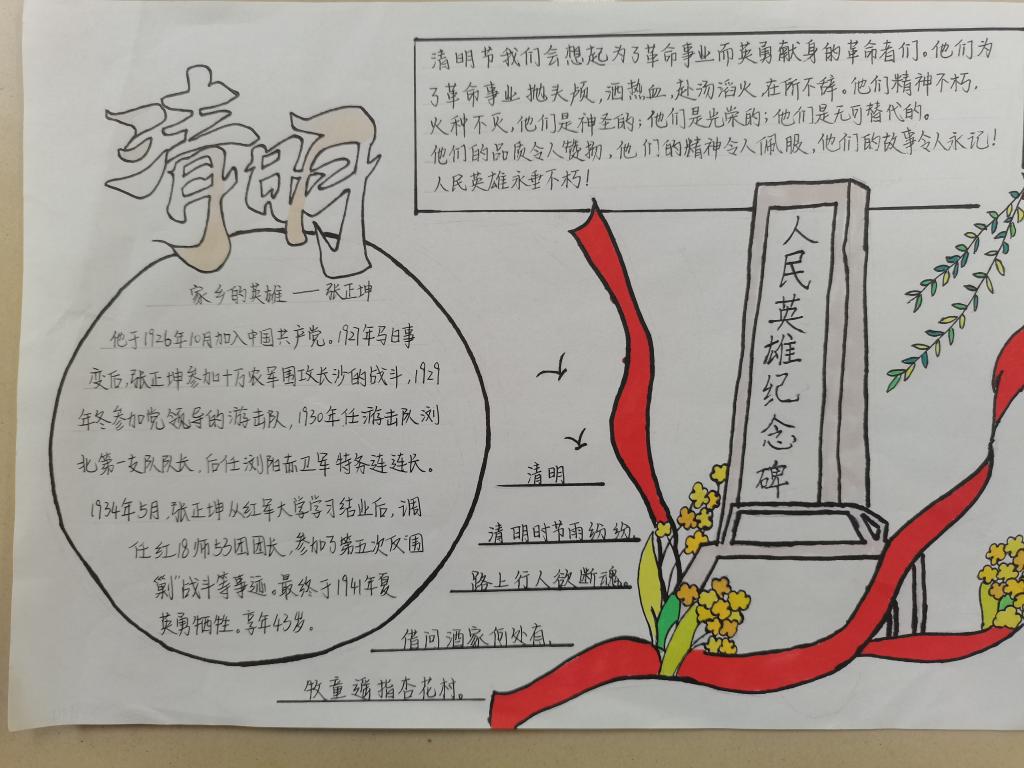 清明
清明节我们会想起为了革命事业而英勇献身的革命者们。他们为
了革命事业抛头颅,洒热血,赴汤滔火,在所不辞。他们精神不朽,
火种不灭,他们是神圣的;他们是光荣的;他们是无可替代的。
他们的品质令人赞勋,他们的精神令人佩服,他们的故事令人永记!
人民英雄永垂不朽!
家乡的英雄——张正坤
他于1926年10月加入中国共产党。1927年马日事
变后,张正坤参加十万农军围攻长沙的战斗,1929
年冬参加党领导的游击队,1930年任游击队浏
北第一支队队长,后任浏阳赤卫军特务连连长。
1934年5月,张正坤从红军大学学习结业后,调
任红18师53团团长,参加了第五次反围
剿"战斗等事迹。最终于1941年夏
英勇牺牲。享年43岁。
人民英雄纪念碑
清明
清明时节雨纷纷,
路上行人欲断魂。
借问酒家何处有,
牧童遥指杏花村。